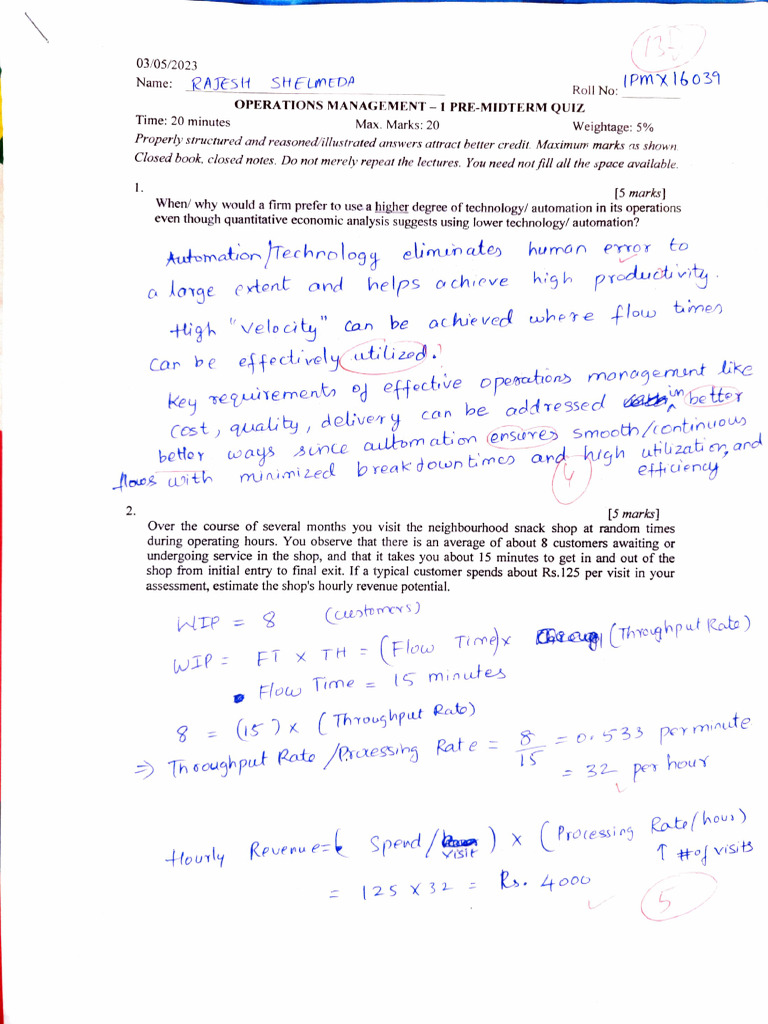 13.5
03/05/2023
Name: RAJESH SHELMEDA
Roll No: IPMX16039
OPERATIONS MANAGEMENT – I PRE-MIDTERM QUIZ
Time: 20 minutes Max. Marks: 20 Weightage: 5%
Properly structured and reasoned/illustrated answers attract better credit. Maximum marks as shown.
Closed book, closed notes. Do not merely repeat the lectures. You need not fill all the space available.
1. [5 marks]
When/ why would a firm prefer to use a higher degree of technology/ automation in its operations
even though quantitative economic analysis suggests using lower technology/ automation?
Automation/Technology eliminates human error to
a large extent and helps achieve high productivity.
High "velocity" can be achieved where flow times
can be effectively utilized.
Key requirements of effective operations management like
cost, quality, delivery can be addressed in better
better ways since automation ensures smooth/continuous
flows with minimized breakdown times and high utilization, and
efficiency
4
2. [5 marks]
Over the course of several months you visit the neighbourhood snack shop at random times
during operating hours. You observe that there is an average of about 8 customers awaiting or
undergoing service in the shop, and that it takes you about 15 minutes to get in and out of the
shop from initial entry to final exit. If a typical customer spends about Rs.125 per visit in your
assessment, estimate the shop's hourly revenue potential.
WIP = 8 (customers)
WIP = FT x TH = (Flow Time) x (Throughput Rate)
Flow Time = 15 minutes
8 = (15) x (Throughput Rate)
⇒ Throughput Rate/Processing Rate = 8/15 = 0.533 per minute
= 32 per hour
Hourly Revenue = ( Spend/visit ) x (Processing Rate/hour)
↑ # of visits
= 125 x 32 = Rs. 4000
5